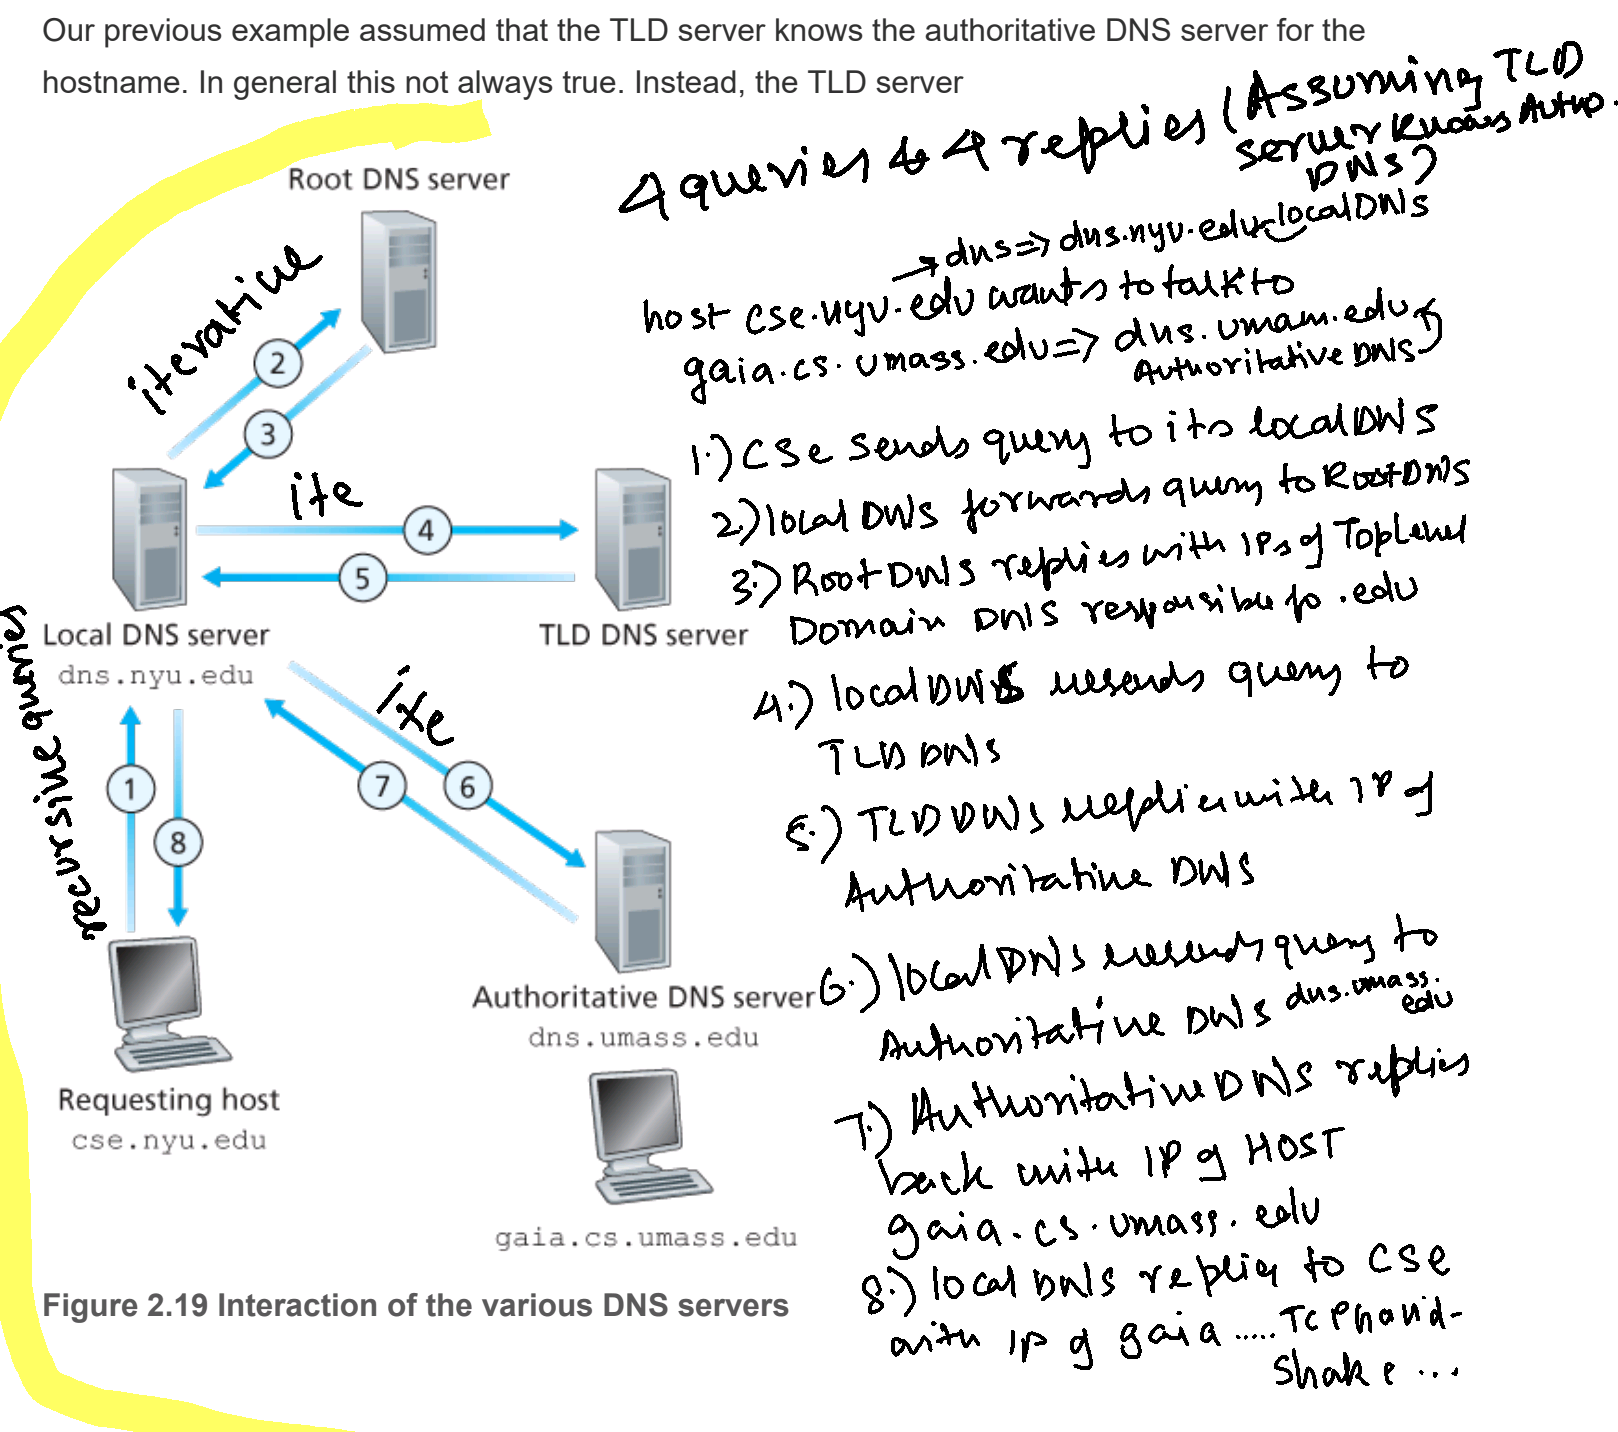 Our previous example assumed that the TLD server knows the authoritative DNS server for the
hostname. In general this not always true. Instead, the TLD server
4 queries & 4 replies (Assuming TLD
server knows Autho.
DNS)
Root DNS server
iterative
2
3
ite
4
5
Local DNS server
dns.nyu.edu
TLD DNS server
recursive queries
ite
1
8
7
6
Authoritative DNS server
dns.umass.edu
Requesting host
cse.nyu.edu
gaia.cs.umass.edu
Figure 2.19 Interaction of the various DNS servers
→ dns => dns.nyu.edu localDNS
host cse.nyu.edu wants to talk to
gaia.cs.umass.edu => dns.umam.edu
Authoritative DNS
1.) CSe sends query to its local DNS
2.) local DNS forwards query to Root DNS
3.) Root DNS replies with IPs of Top Level
Domain DNS responsible fo .edu
4.) local DNS resends query to
TLD DNS
5.) TLD DNS replies with IP of
Authoritative DNS
6.) local DNS resends query to
Authoritative DNS dns.umass.
edu
7.) Authoritative DNS replies
back with IP of HOST
gaia.cs.umass.edu
8.) local DNS replies to CSe
with IP of gaia ..... TCP hand-
shake ...